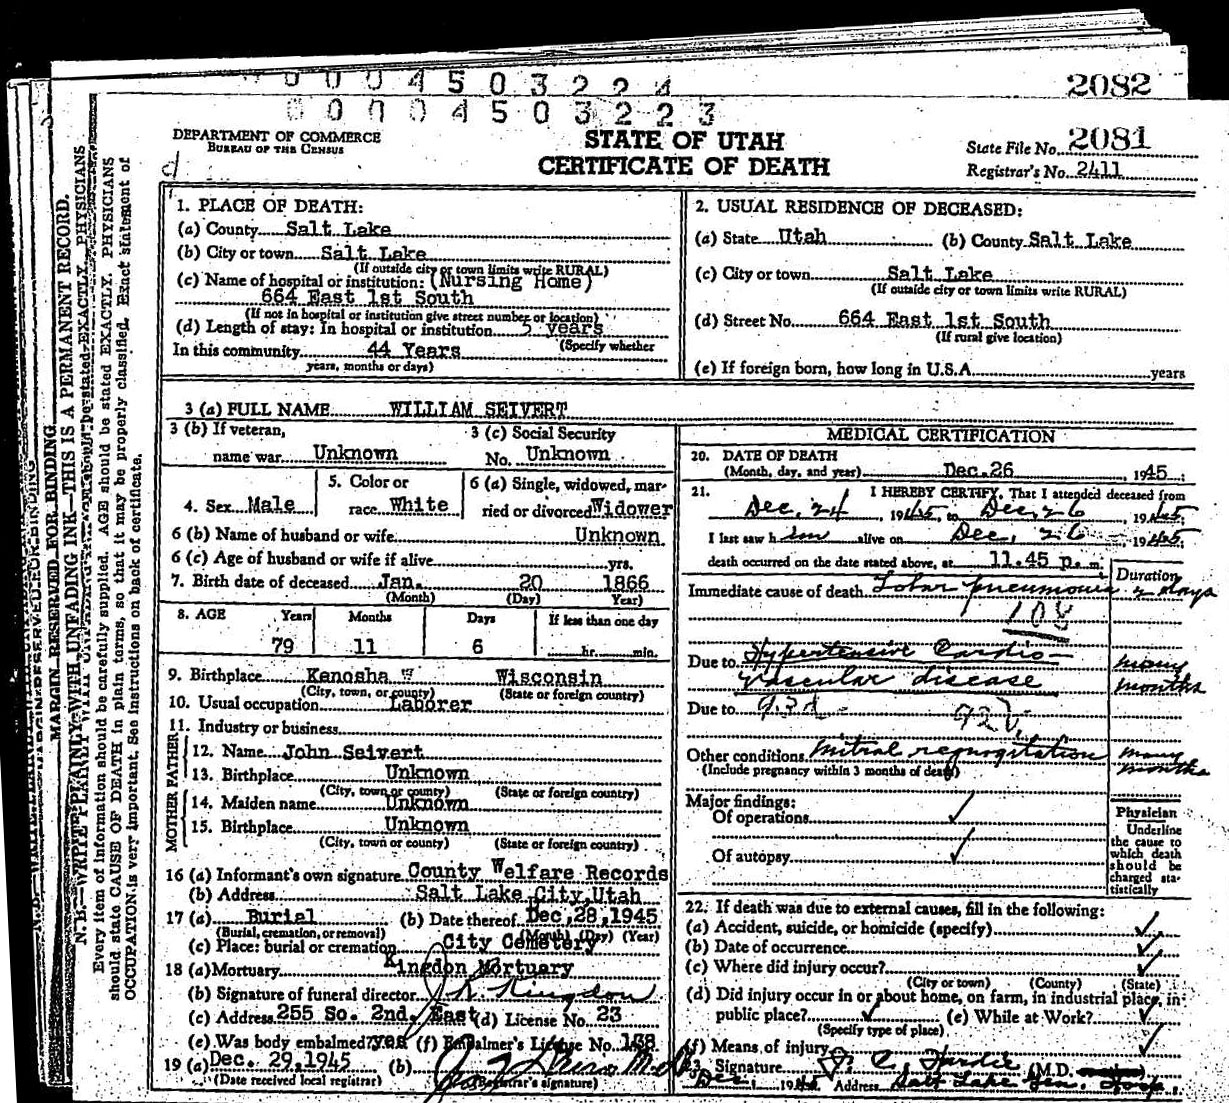 0 0 0 4 5 0 3 2 2 4
2082
0 0 0 4 5 0 3 2 2 3
DEPARTMENT OF COMMERCE
BUREAU OF THE CENSUS
STATE OF UTAH
CERTIFICATE OF DEATH
State File No. 2081
Registrar's No. 2411
d
MARGIN RESERVED FOR BINDING
N. B.—WRITE PLAINLY WITH UNFADING INK—THIS IS A PERMANENT RECORD.
Every item of information should be carefully supplied. AGE should be stated EXACTLY. PHYSICIANS
should state CAUSE OF DEATH in plain terms, so that it may be properly classified. Exact statement of
OCCUPATION is very important. See instructions on back of certificate.
1. PLACE OF DEATH:
(a) County Salt Lake
(b) City or town Salt Lake
(If outside city or town limits write RURAL)
(c) Name of hospital or institution: (Nursing Home)
664 East 1st South
(If not in hospital or institution give street number or location)
(d) Length of stay: In hospital or institution 5 years
(Specify whether
In this community 44 Years
years, months or days)
2. USUAL RESIDENCE OF DECEASED:
(a) State Utah (b) County Salt Lake
(c) City or town Salt Lake
(If outside city or town limits write RURAL)
(d) Street No. 664 East 1st South
(If rural give location)
(e) If foreign born, how long in U.S.A. years
3 (a) FULL NAME WILLIAM SEIVERT
3 (b) If veteran,
name war Unknown
3 (c) Social Security
No. Unknown
4. Sex Male
5. Color or
race White
6 (a) Single, widowed, mar-
ried or divorced Widower
6 (b) Name of husband or wife Unknown
6 (c) Age of husband or wife if alive yrs.
7. Birth date of deceased Jan. 20 1866
(Month) (Day) Year)
8. AGE Years Months Days If less than one day
79 11 6 hr. min.
9. Birthplace Kenosha Wisconsin
(City, town, or county) (State or foreign country)
10. Usual occupation Laborer
11. Industry or business
FATHER
12. Name John Seivert
13. Birthplace Unknown
(City, town or county) (State or foreign country)
MOTHER
14. Maiden name Unknown
15. Birthplace Unknown
(City, town or county) (State or foreign country)
16 (a) Informant's own signature County Welfare Records
(b) Address Salt Lake City, Utah
17 (a) Burial (b) Date thereof Dec, 28, 1945
(Burial, cremation, or removal) (Month) (Day) (Year)
(c) Place: burial or cremation City Cemetery
18 (a) Mortuary Kingdon Mortuary
(b) Signature of funeral director Kingdon
(c) Address 255 So. 2nd. East (d) License No. 23
(e) Was body embalmed? yes (f) Embalmer's License No. 138
19 (a) Dec. 29, 1945 (b)
(Date received local registrar) (Registrar's signature)
MEDICAL CERTIFICATION
20. DATE OF DEATH
(Month, day, and year) Dec. 26 1945
21. I HEREBY CERTIFY, That I attended deceased from
Dec, 24 1945, to Dec, 26 1945;
I last saw him alive on Dec, 26 1945;
death occurred on the date stated above, at 11.45 p. m.
Duration
Immediate cause of death Lobar pneumonia 2 days
108
Due to Hypertensive Cardio- many
vascular disease months
Due to 93d
Other conditions Mitral regurgitation many
(Include pregnancy within 3 months of death) months
Major findings:
Of operations ✓
Of autopsy ✓
Physician
Underline
the cause to
which death
should be
charged sta-
tistically
22. If death was due to external causes, fill in the following:
(a) Accident, suicide, or homicide (specify) ✓
(b) Date of occurrence ✓
(c) Where did injury occur? ✓
(City or town) (County) (State)
(d) Did injury occur in or about home, on farm, in industrial place, in
public place? ✓ (e) While at Work? ✓
(Specify type of place)
(f) Means of injury ✓
23. Signature (M.D.
Dec. 19 Address Salt Lake Gen. Hosp.